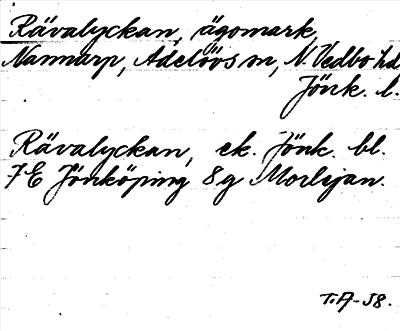 Rävalyckan, ägomark,
Nannarp, Adelövs sn, N. Vedbo hd
Jönk. l.
Rävalyckan, ek. Jönk. bl.
7E Jönköping 8g Morlijan.
T.A-58.